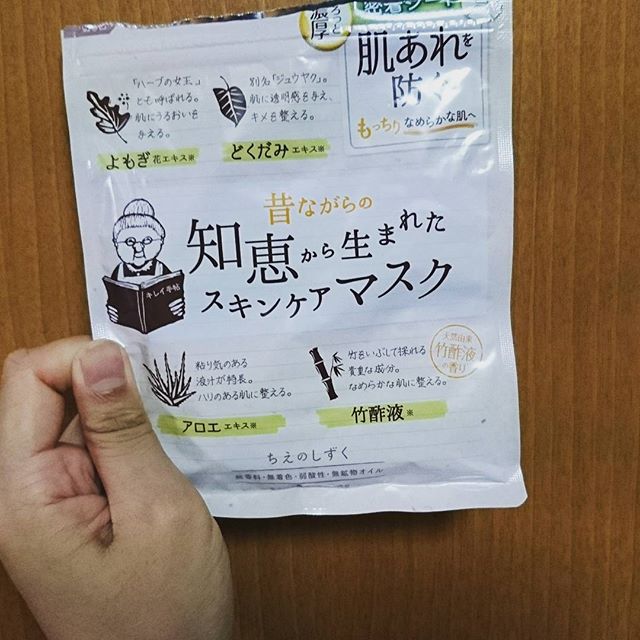 とろっと
濃厚
密着シート
肌あれを
防ぐ
もっちりなめらかな肌へ
「ハーブの女王」
とも呼ばれる。
肌にうるおいを
与える。
よもぎ花エキス※
別名「ジュウヤク」。
肌に透明感を与え、
キメを整える。
どくだみエキス※
昔ながらの
知恵から生まれた
スキンケアマスク
キレイ手帖
粘り気のある
液汁が特長。
ハリのある肌に整える。
アロエエキス※
竹をいぶして採れる
貴重な成分。
なめらかな肌に整える。
竹酢液※
天然由来
竹酢液
の香り
ちえのしずく
無香料・無着色・弱酸性・無鉱物オイル